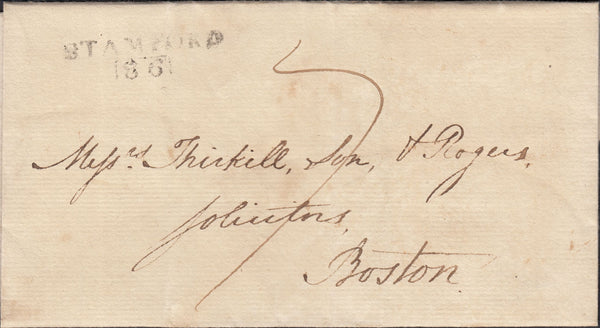 STAMFORD
86
7
Messrs Thirkill, Son, & Rogers,
Solicitors,
Boston.